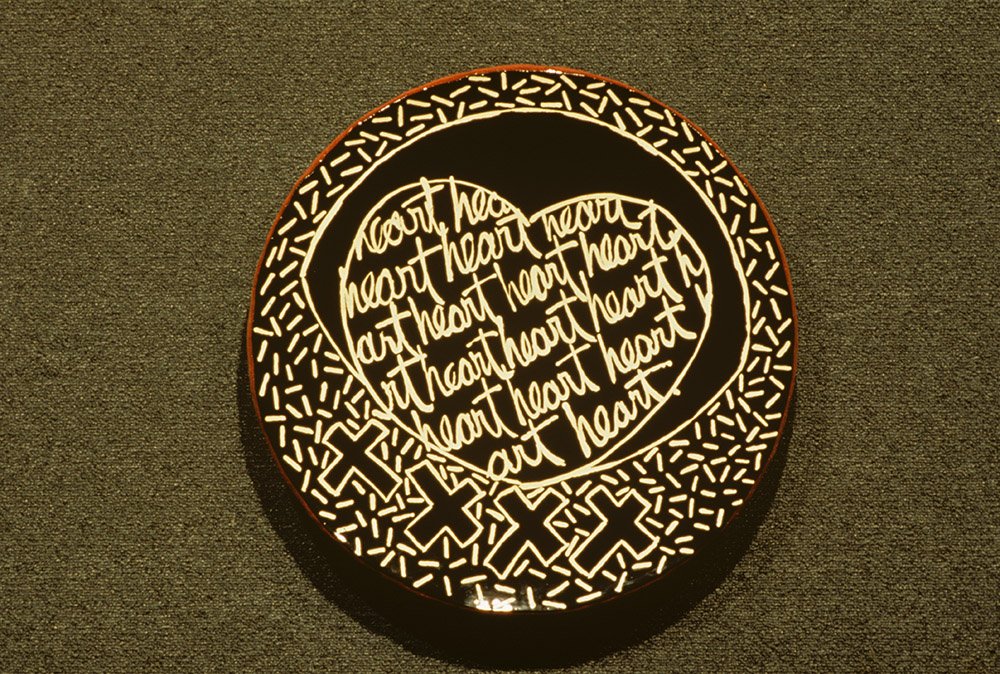 heart hea
heart
heart heart heart
art heart heart heart h
rt heart heart heart
heart heart heart
art heart